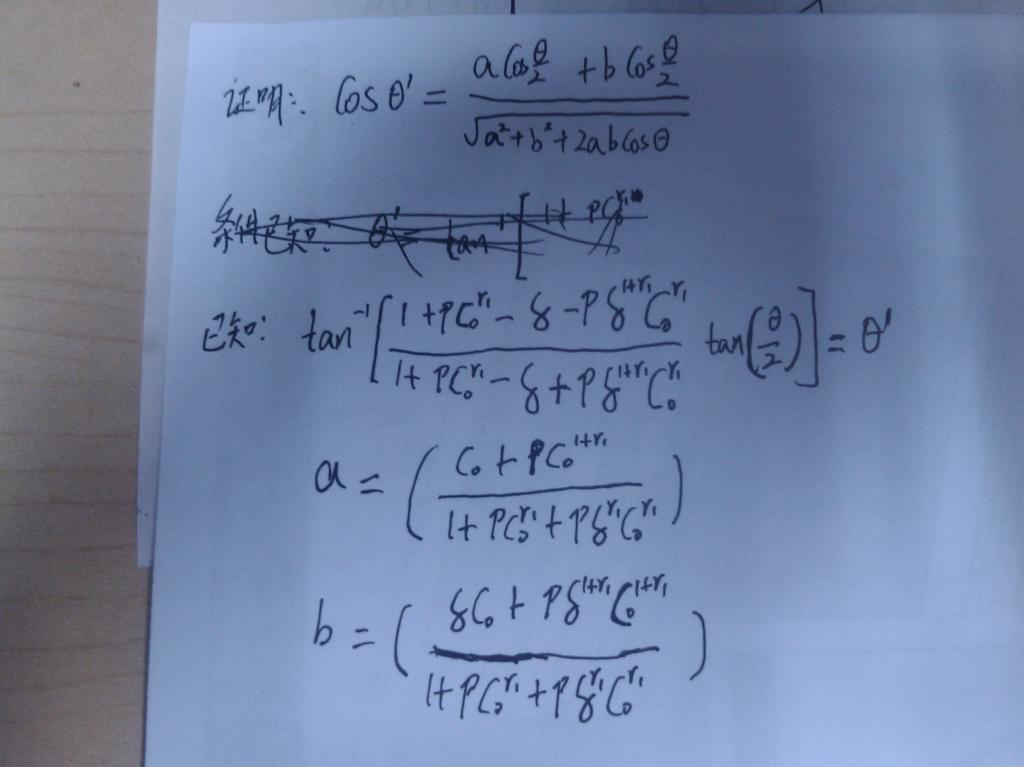 证明: cos θ' = (a cos θ/2 + b cos θ/2) / √(a² + b² + 2ab cos θ)
条件已知: θ' tan⁻¹ [ 1+ PC₀^r₁
已知: tan⁻¹ [ (1 + PC₀^r₁ - δ - Pδ^(1+r₁) C₀^r₁) / (1 + PC₀^r₁ - δ + Pδ^(1+r₁) C₀^r₁) tan(θ/2) ] = θ'
a = ( (C₀ + PC₀^(1+r₁)) / (1 + PC₀^r₁ + Pδ^r₁ C₀^r₁) )
b = ( (δC₀ + Pδ^(1+r₁) C₀^(1+r₁)) / (1 + PC₀^r₁ + Pδ^r₁ C₀^r₁) )